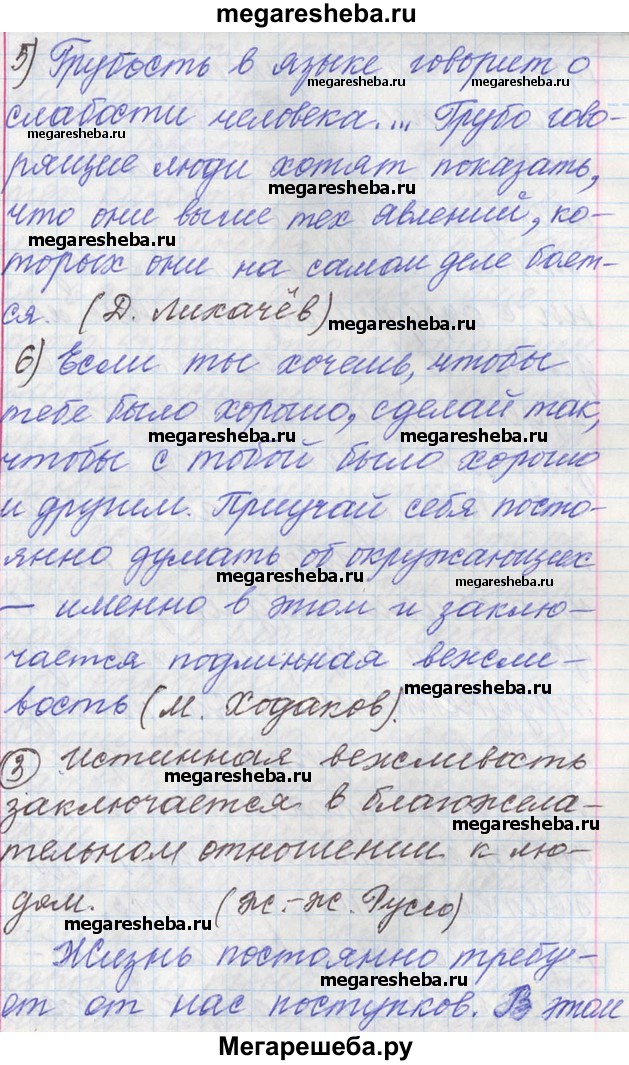 megaresheba.ru
5) Грубость в языке говорит о
megaresheba.ru
слабости человека... Грубо гово-
megaresheba.ru
рящие люди хотят показать,
megaresheba.ru
что они выше тех явлений, ко-
megaresheba.ru
торых они на самом деле боят-
ся. (Д. Лихачёв)
megaresheba.ru
6) Если ты хочешь, чтобы
тебе было хорошо, сделай так,
megaresheba.ru megaresheba.ru
чтобы с тобой было хорошо
и другим. Приучай себя посто-
янно думать об окружающих
megaresheba.ru megaresheba.ru
— именно в этом и заклю-
чается подлинная вежли-
megaresheba.ru
вость (М. Ходаков).
3 Истинная вежливость
megaresheba.ru
заключается в благожела-
megaresheba.ru
тельном отношении к лю-
дям. (Ж.-Ж. Руссо)
megaresheba.ru
Жизнь постоянно требу-
megaresheba.ru
ет от нас поступков. В этом
Мегарешеба.ру